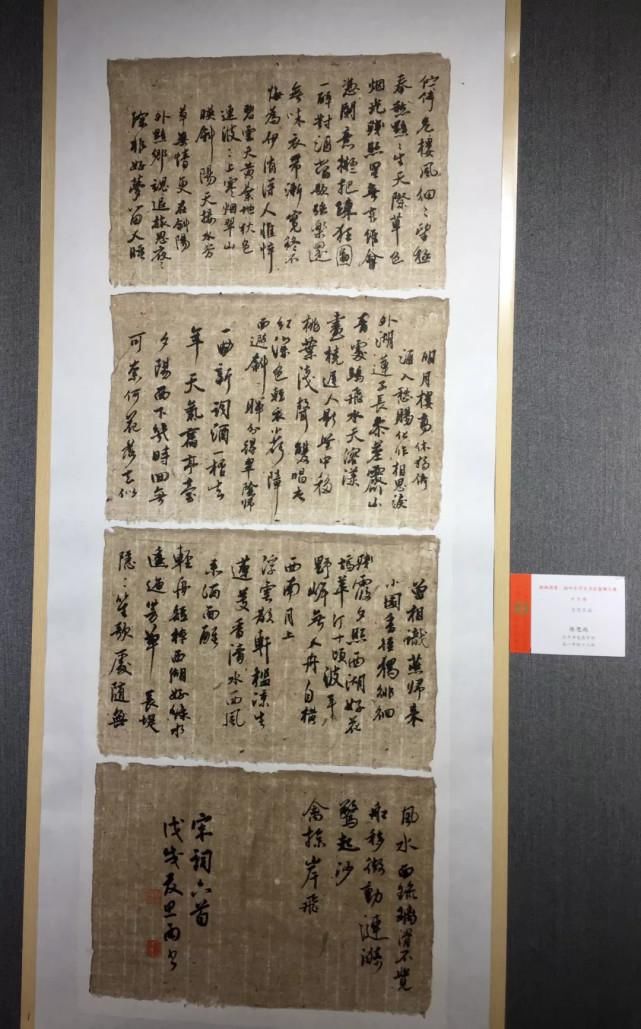 佇倚危樓風細々望極
春愁黯々生天際草色
烟光殘照里無言誰會
憑闌意擬把疎狂圖
一醉對酒當歌強樂還
無味衣帶漸寬終不
悔為伊消得人憔悴
碧雲天黃葉地秋色
連波々上寒烟翠山
映斜陽天接水芳
草無情更在斜陽
外黯鄉魂追旅思夜々
除非好夢留人睡
明月樓高休獨倚
酒入愁腸化作相思淚
外湖蓮子長參差霽山
青處鷗飛水天溶漾
畫橈遲人影鑒中移
桃葉淺聲雙唱杏
紅深色輕衣小荷障
面避斜暉分得翠陰歸
一曲新詞酒一杯去
年天氣舊亭臺
夕陽西下幾時回無
可奈何花落去似
曾相識燕歸來
小園香徑獨徘徊
殘霞夕照西湖好花
塢蘋汀十頃波平
野岸無人舟自橫
西南月上
浮雲散軒檻涼生
蓮芰香清水面風
來酒面醒
輕舟短棹西湖好綠水
逶迤芳草長堤
隱々笙歌處處隨無
風水面琉璃滑不覺
船移微動漣漪
驚起沙
禽掠岸飛
宋詞六首
戊戌夏思雨書